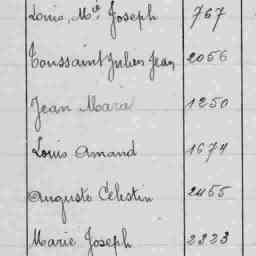 Louis, Mie Joseph 767
Toussaint Julien Jean 2056
Jean Marie 1250
Louis Amand 1674
Auguste Célestin 2455
Marie Joseph 2223